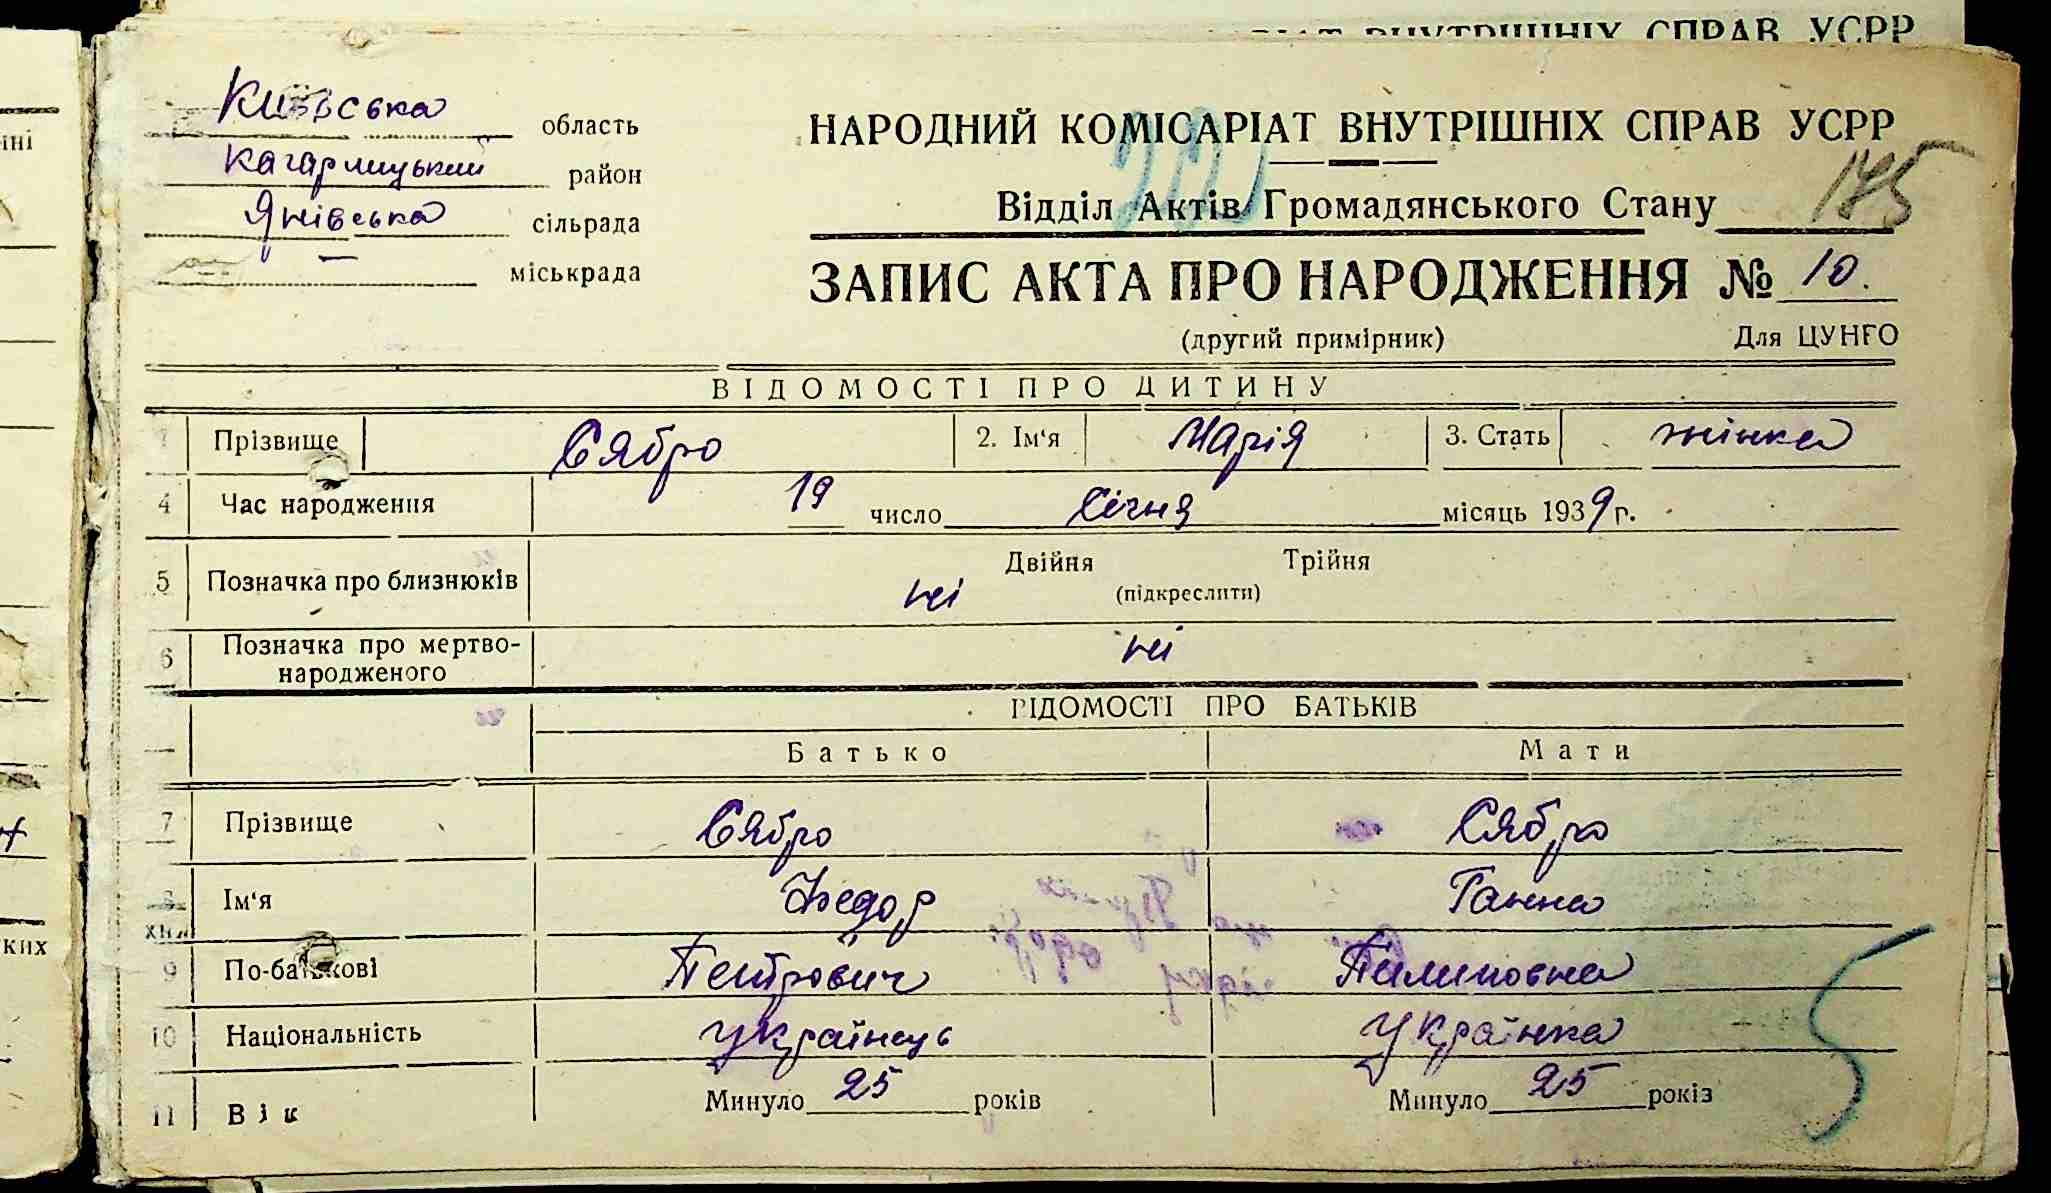 Київська область
Кагарлицький район
Янівська сільрада
— міськрада
НАРОДНИЙ КОМІСАРІАТ ВНУТРІШНІХ СПРАВ УСРР
Відділ Актів Громадянського Стану 175
ЗАПИС АКТА ПРО НАРОДЖЕННЯ № 10.
(другий примірник) Для ЦУНГО
ВІДОМОСТІ ПРО ДИТИНУ
1 Прізвище Сябро 2. Ім'я Марія 3. Стать жінка
4 Час народження 19 число Січня місяць 1939 г.
5 Позначка про близнюків ні Двійня Трійня
(підкреслити)
6 Позначка про мертво-
народженого ні
ВІДОМОСТІ ПРО БАТЬКІВ
Батько Мати
7 Прізвище Сябро Сябро
8 Ім'я Федор Ганна
9 По-батькові Петрович Пилиповна
10 Національність українець українка
11 Вік Минуло 25 років Минуло 25 років
ВНУТРІШНІХ СПРАВ УСРР
ких